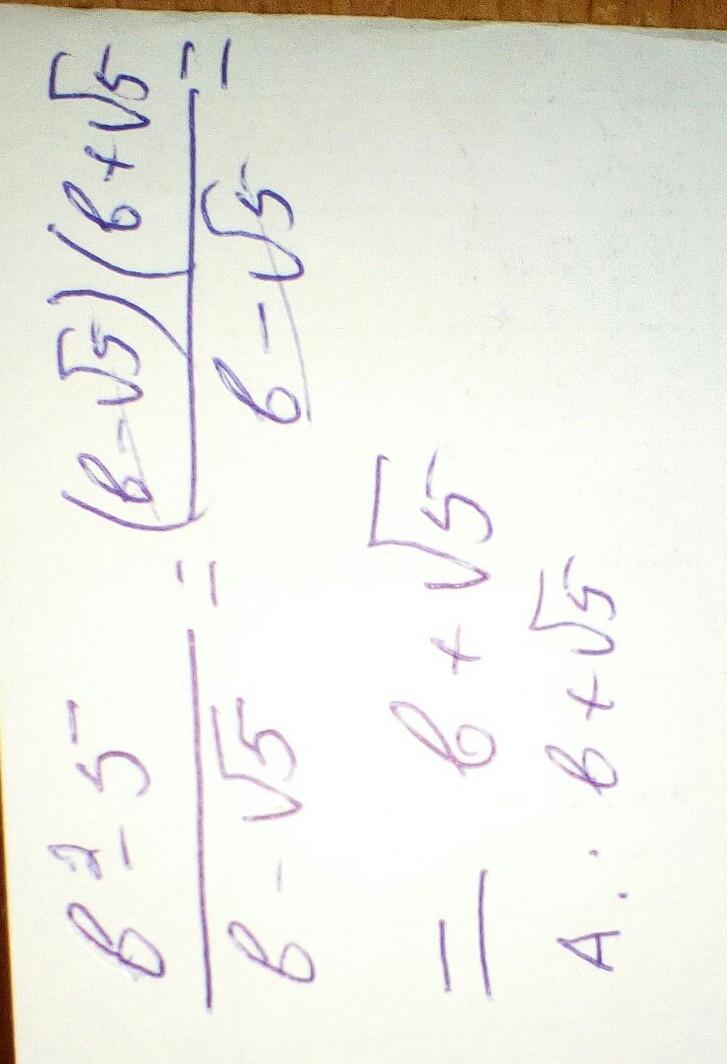 (b² - 5)/(b - √5) = ((b - √5)(b + √5)/(b - √5) =
= b + √5
A. : b + √5